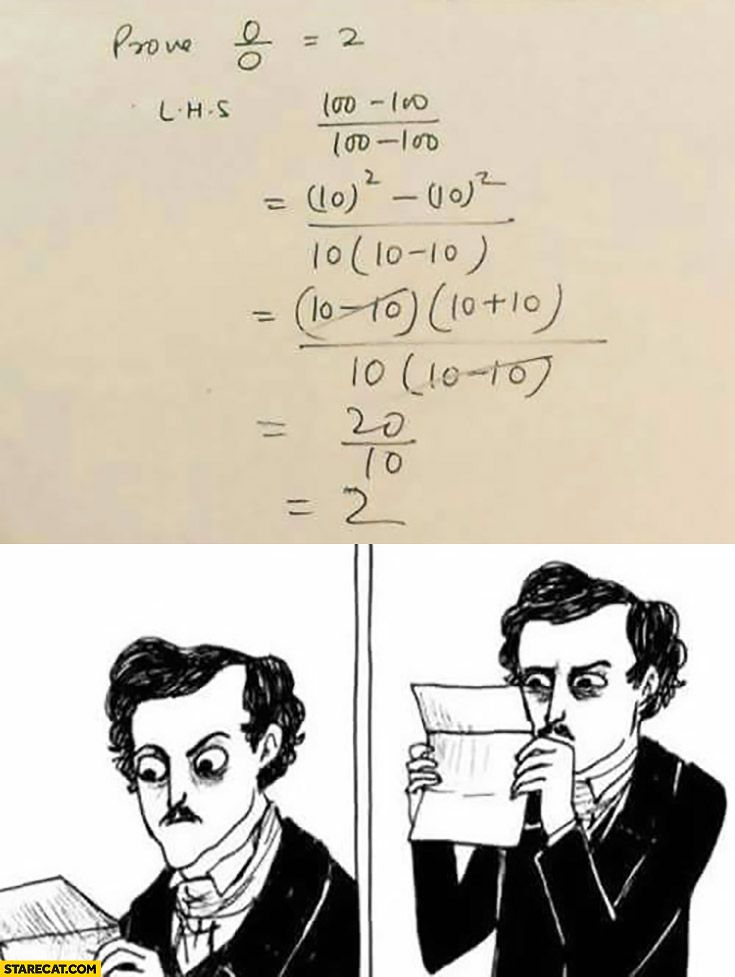 Prove 0/0 = 2
L.H.S (100 - 100)/(100 - 100)
= ((10)² - (10)²)/(10(10-10))
= ((10-10)(10+10))/(10(10-10))
= 20/10
= 2
STARECAT.COM